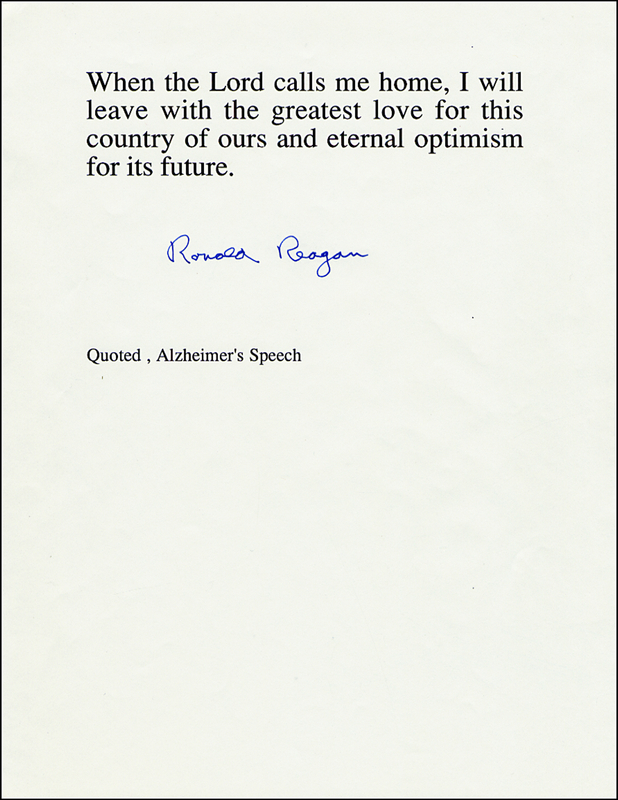 When the Lord calls me home, I will
leave with the greatest love for this
country of ours and eternal optimism
for its future.
Ronald Reagan
Quoted , Alzheimer's Speech